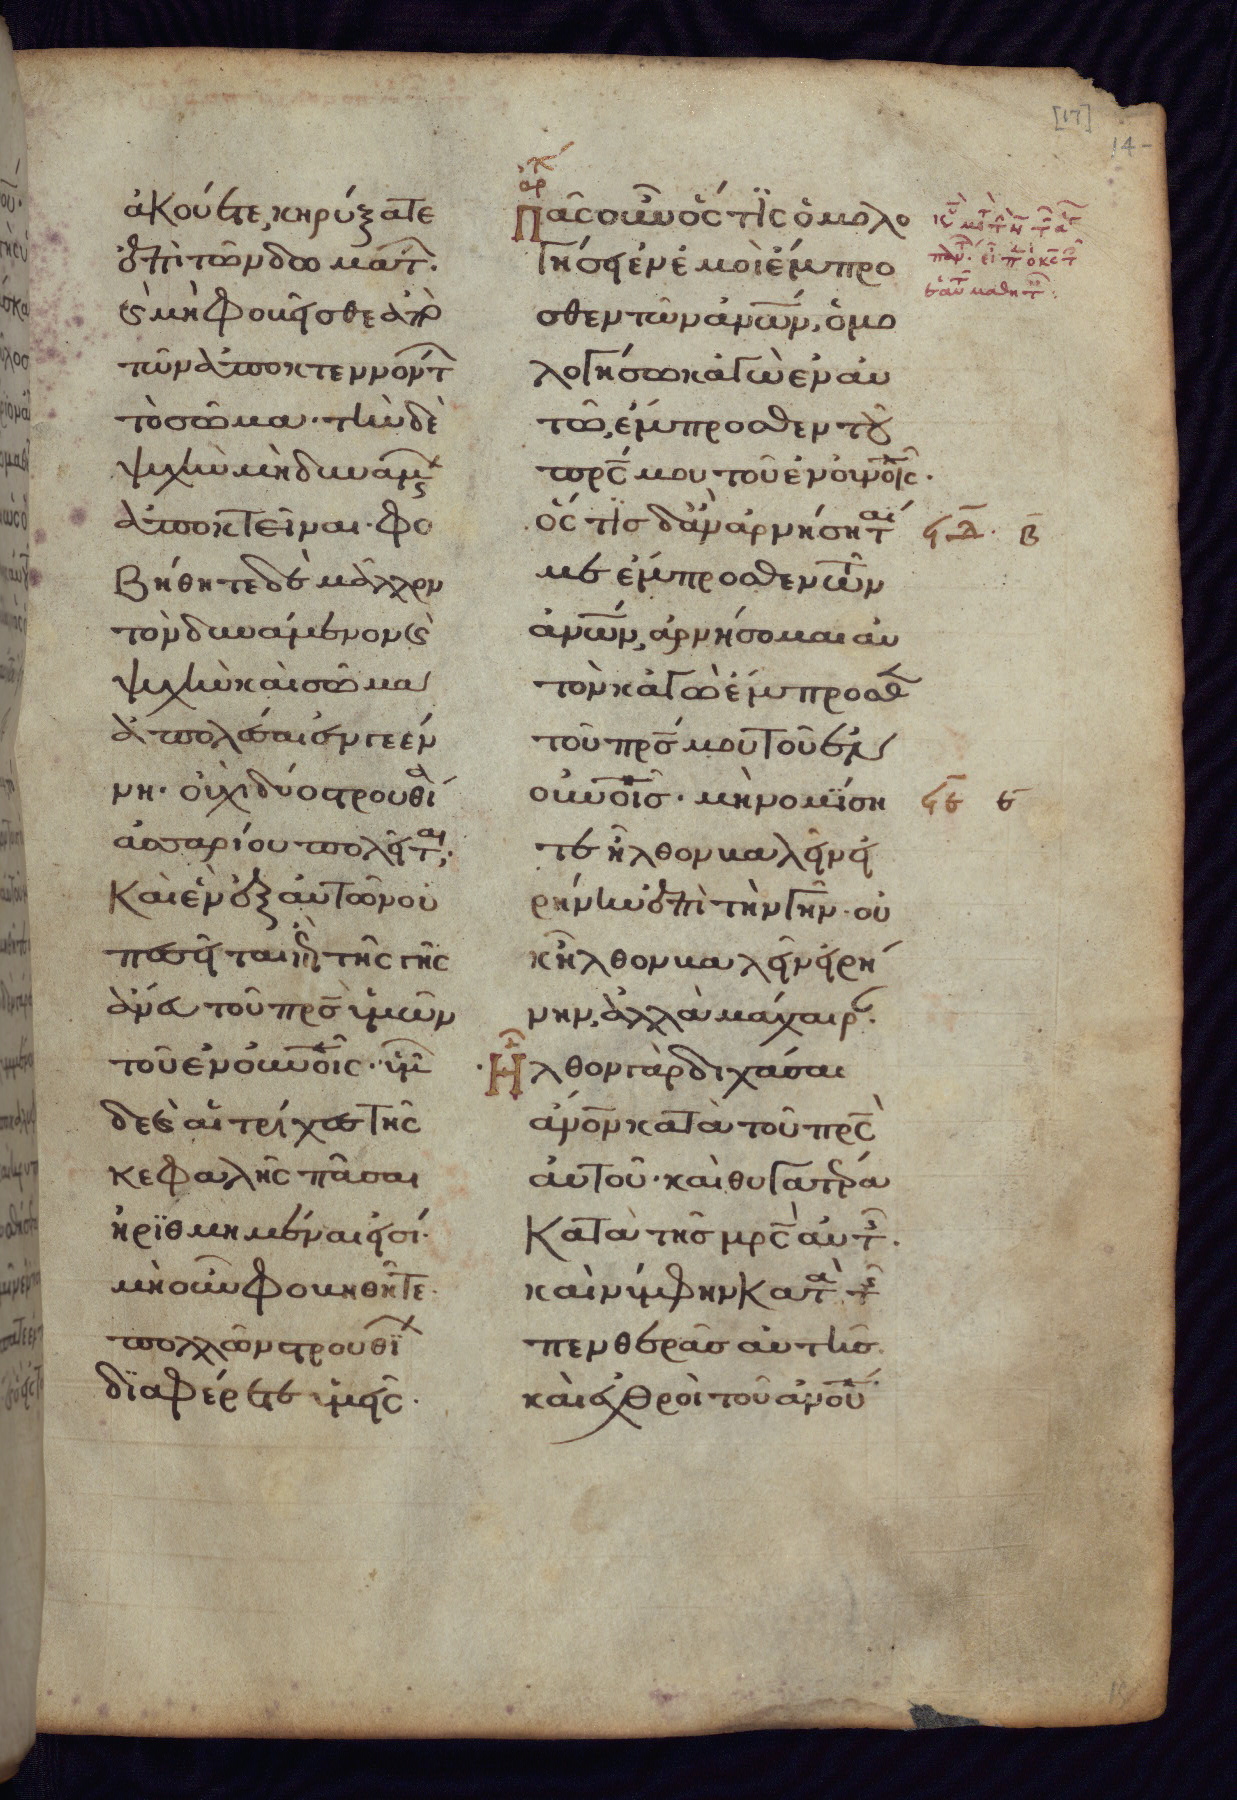 ἀκούετε, κηρύξατε
ἐπὶ τῶν δωματ.
ϗ μὴ φοβεῖσθε ἀπὸ
τῶν ἀποκτεννόντ
τὸ σῶμα· τὴν δὲ
ψυχὴν μὴ δυναμ
ἀποκτεῖναι· φο
βήθητε δὲ μᾶλλον
τὸν δυνάμενον ϗ
ψυχὴν καὶ σῶμα
ἀπολέσαι ἐν γεέν
νη· οὐχὶ δύο στρουθία
ἀσσαρίου πωλεῖται;
καὶ ἓν ἐξ αὐτῶν οὐ
πεσεῖται ἐπὶ τῆς γῆς
ἄνευ τοῦ πρς ὑμῶν
τοῦ ἐν οὐνοῖς· ὑμ
δὲ ϗ αἱ τρίχες τῆς
κεφαλῆς πᾶσαι
ἠρϊθμημέναι εἰσί·
μὴ οὖν φοβηθῆτε·
πολλῶν στρουθΐ
δϊαφέρετε ὑμεῖς·
Πᾶς οὖν ὅς τϊς ὁμολο
γήσει ἐν ἐμοὶ ἔμπρο
σθεν τῶν ἀνων, ὁμο
λογήσω κἀγὼ ἐν αὐ
τῶ, ἔμπροσθεν τοῦ
πρς μου τοῦ ἐν οὐνοῖς·
ὅς τϊς δ' ἂν ἀρνήσηται
με ἔμπροσθεν τῶν
ἀνων, ἀρνήσομαι αὐ
τὸν κἀγὼ ἔμπροσθ
τοῦ πρς μου τοῦ ἐν
οὐνοῖς· μὴ νομΐση
τε ἦλθον βαλεῖν εἰ
ρήνην ἐπὶ τὴν γῆν· οὐ
κ ἦλθον βαλεῖν εἰρή
νην, ἀλλὰ μάχαιρ·
Ἦλθον γὰρ διχάσαι
ἀνον κατὰ τοῦ πρς
αὐτοῦ· καὶ θυγατέρα
κατὰ τῆς μρς αὐτ·
καὶ νύμφην κατὰ τ
πενθερᾶς αὐτῆς·
καὶ ἐχθροὶ τοῦ ἀνου
ϟδ. β
ϟε ε
[17]
14